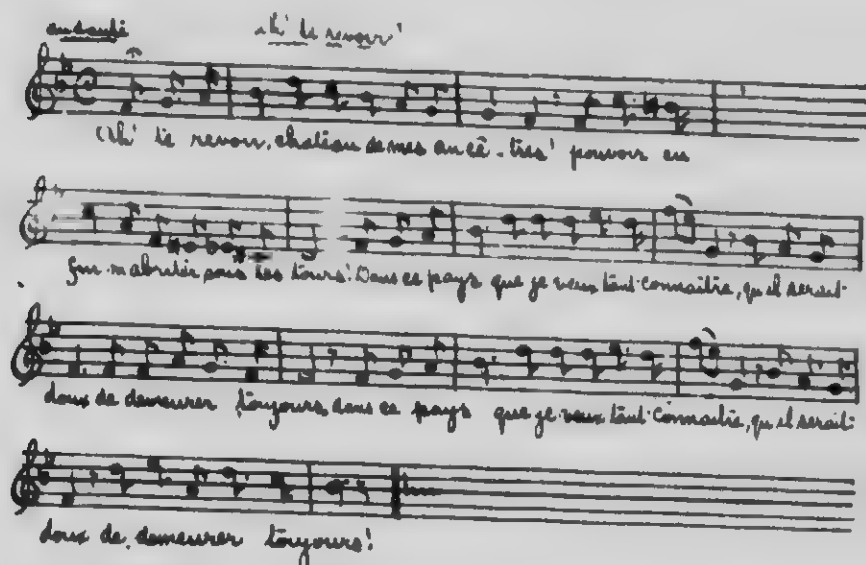 andante
Ah! te revoir!
Ah! te revoir, chateau de mes ancê-tres! pouvoir en
fin m'abriter sous tes tours! Dans ce pays que je veux tant connaitre, qu'il serait
doux de demeurer toujours, dans ce pays que je veux tant connaitre, qu'il serait
doux de demeurer toujours!